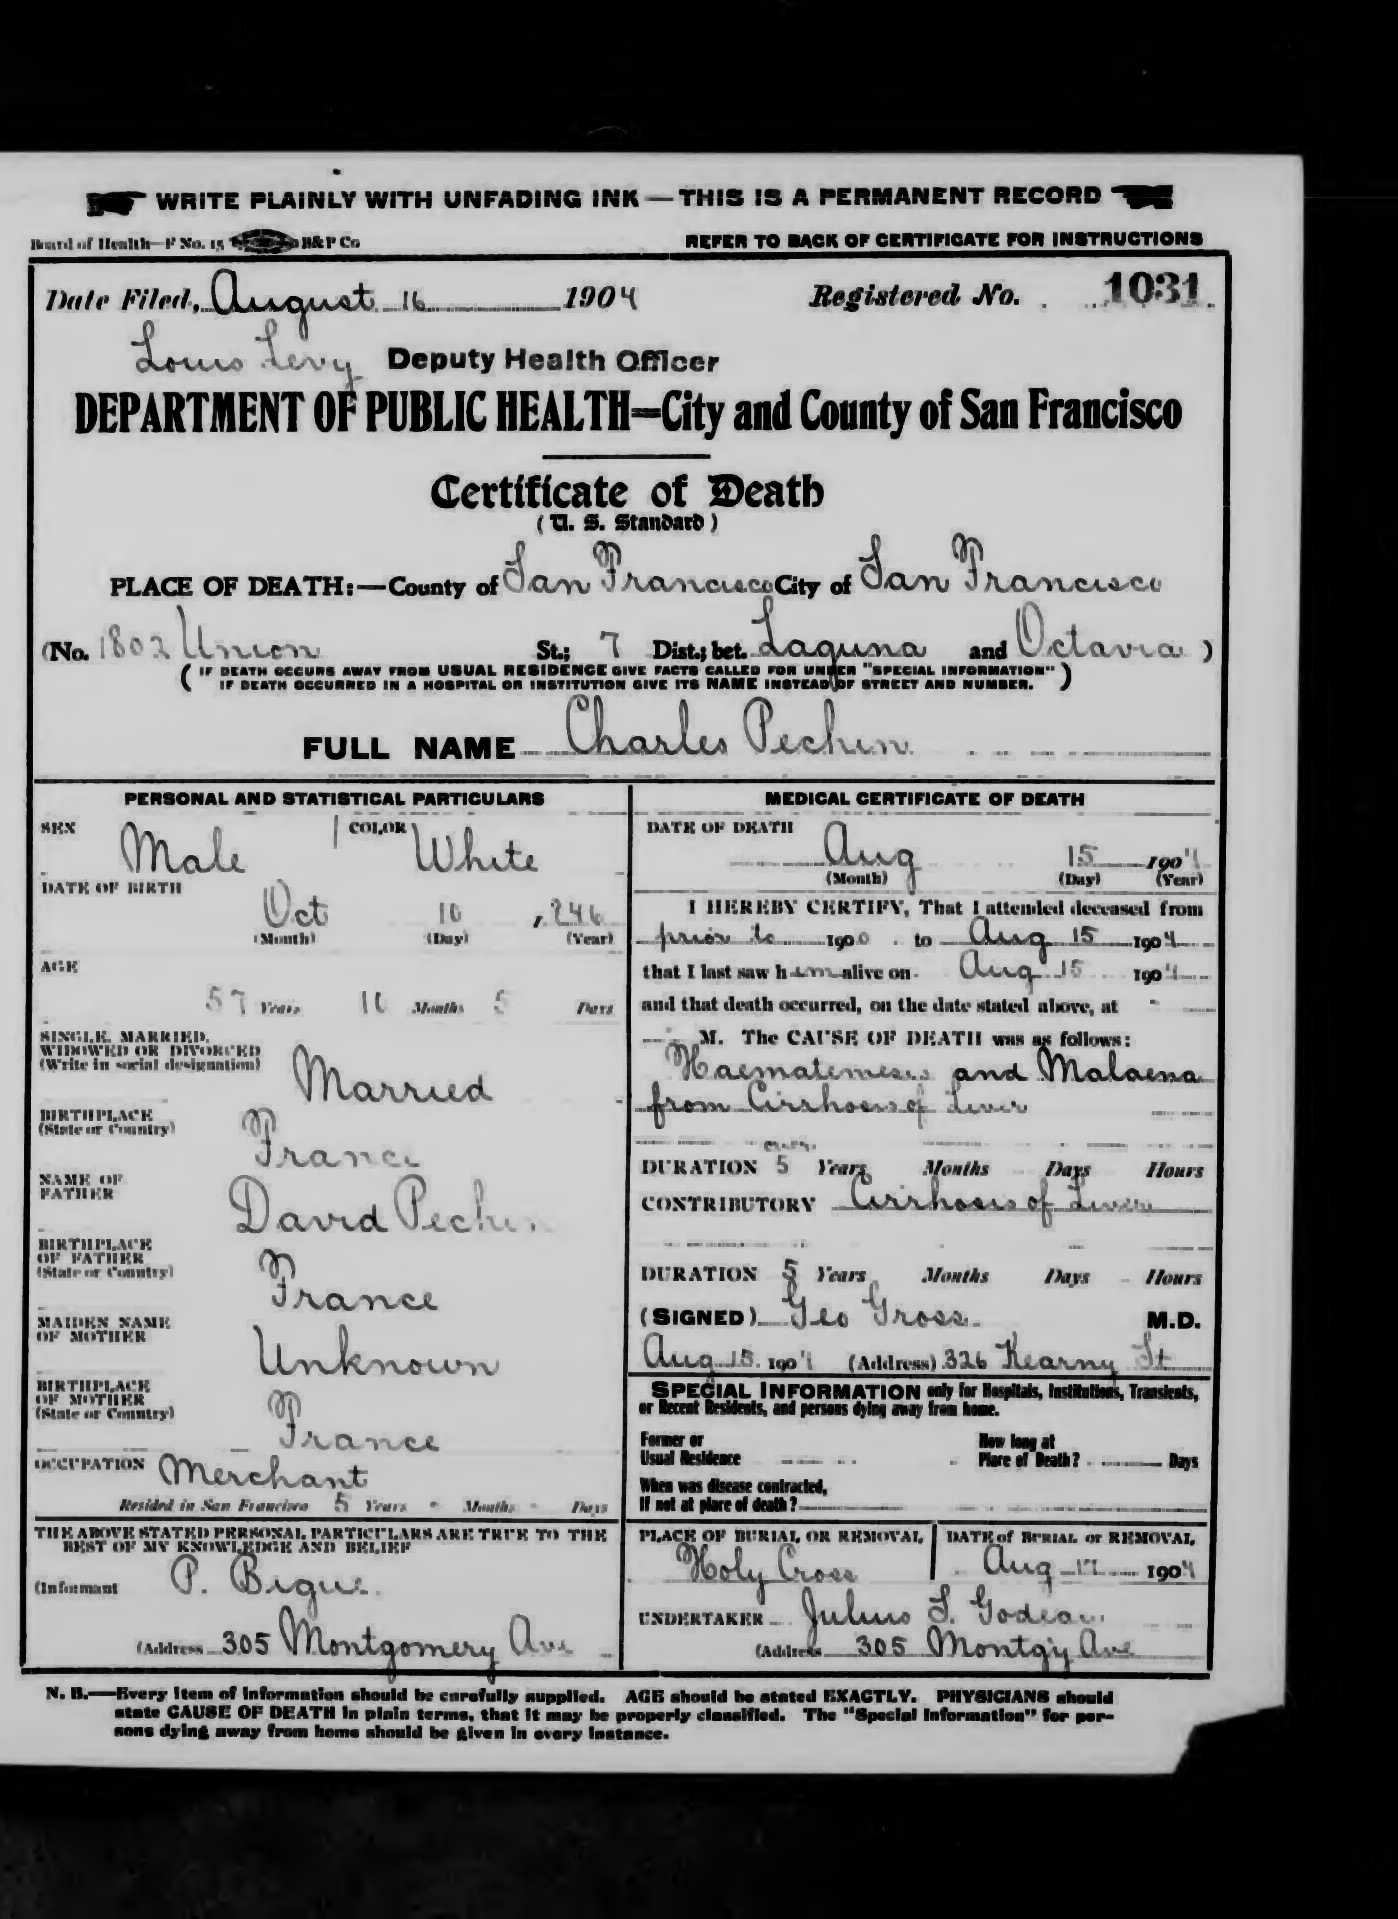 WRITE PLAINLY WITH UNFADING INK — THIS IS A PERMANENT RECORD
Board of Health—F No. 15 H&P Co
REFER TO BACK OF CERTIFICATE FOR INSTRUCTIONS
Date Filed, August 16 1904 Registered No. 1031
Louis Levy Deputy Health Officer
DEPARTMENT OF PUBLIC HEALTH=City and County of San Francisco
Certificate of Death
(U. S. Standard)
PLACE OF DEATH:—County of San Francisco City of San Francisco
(No. 1802 Union St.; 7 Dist.; bet. Laguna and Octavia )
( IF DEATH OCCURS AWAY FROM USUAL RESIDENCE GIVE FACTS CALLED FOR UNDER "SPECIAL INFORMATION"
IF DEATH OCCURRED IN A HOSPITAL OR INSTITUTION GIVE ITS NAME INSTEAD OF STREET AND NUMBER. )
FULL NAME Charles Pechin
PERSONAL AND STATISTICAL PARTICULARS
SEX Male COLOR White
DATE OF BIRTH
Oct 10 , 246
(Month) (Day) (Year)
AGE
57 Years 10 Months 5 Days
SINGLE, MARRIED,
WIDOWED OR DIVORCED
(Write in social designation) Married
BIRTHPLACE
(State or Country) France
NAME OF
FATHER David Pechin
BIRTHPLACE
OF FATHER
(State or Country) France
MAIDEN NAME
OF MOTHER Unknown
BIRTHPLACE
OF MOTHER
(State or Country) France
OCCUPATION Merchant
Resided in San Francisco 5 Years - Months - Days
THE ABOVE STATED PERSONAL PARTICULARS ARE TRUE TO THE
BEST OF MY KNOWLEDGE AND BELIEF
(Informant P. Bigue
(Address 305 Montgomery Ave
MEDICAL CERTIFICATE OF DEATH
DATE OF DEATH
Aug 15 1904
(Month) (Day) (Year)
I HEREBY CERTIFY, That I attended deceased from
prior to 1900 to Aug 15 1904
that I last saw him alive on Aug 15 1904
and that death occurred, on the date stated above, at -
- M. The CAUSE OF DEATH was as follows:
Haematemesis and Malaena
from Cirrhosis of Liver
DURATION 5 Years Months Days Hours
CONTRIBUTORY Cirrhosis of Liver
DURATION 5 Years Months Days Hours
(SIGNED) Geo Gross M.D.
Aug 15 1904 (Address) 326 Kearny St
SPECIAL INFORMATION only for Hospitals, Institutions, Transients,
or Recent Residents, and persons dying away from home.
Former or
Usual Residence
How long at
Place of Death? Days
When was disease contracted,
If not at place of death?
PLACE OF BURIAL OR REMOVAL
Holy Cross
DATE of BURIAL or REMOVAL
Aug 17 1904
UNDERTAKER Julius S. Godeau
(Address 305 Montg'y Ave
N. B.—Every item of information should be carefully supplied. AGE should be stated EXACTLY. PHYSICIANS should
state CAUSE OF DEATH in plain terms, that it may be properly classified. The "Special Information" for per-
sons dying away from home should be given in every instance.